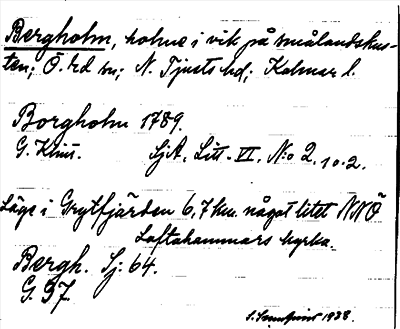 Bergholm, holme i vik på smålandskus-
ten; Ö. Ed sn; N. Tjusts hd; Kalmar l.
Borgholm 1789.
G. Klint. SjA. Litt. VI. N:o 2. 10. 2.
Läge i Grytfjärden 6,7 km. något litet NNÖ
Loftahammars kyrka.
Bergh. Sj: 64.
G. 97.
1938.